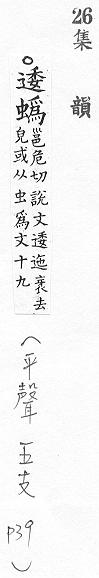 26
集韻
。逶蟡邕危切說文逶迤衺去
皃或从虫爲文十九
(平聲五支
P39)